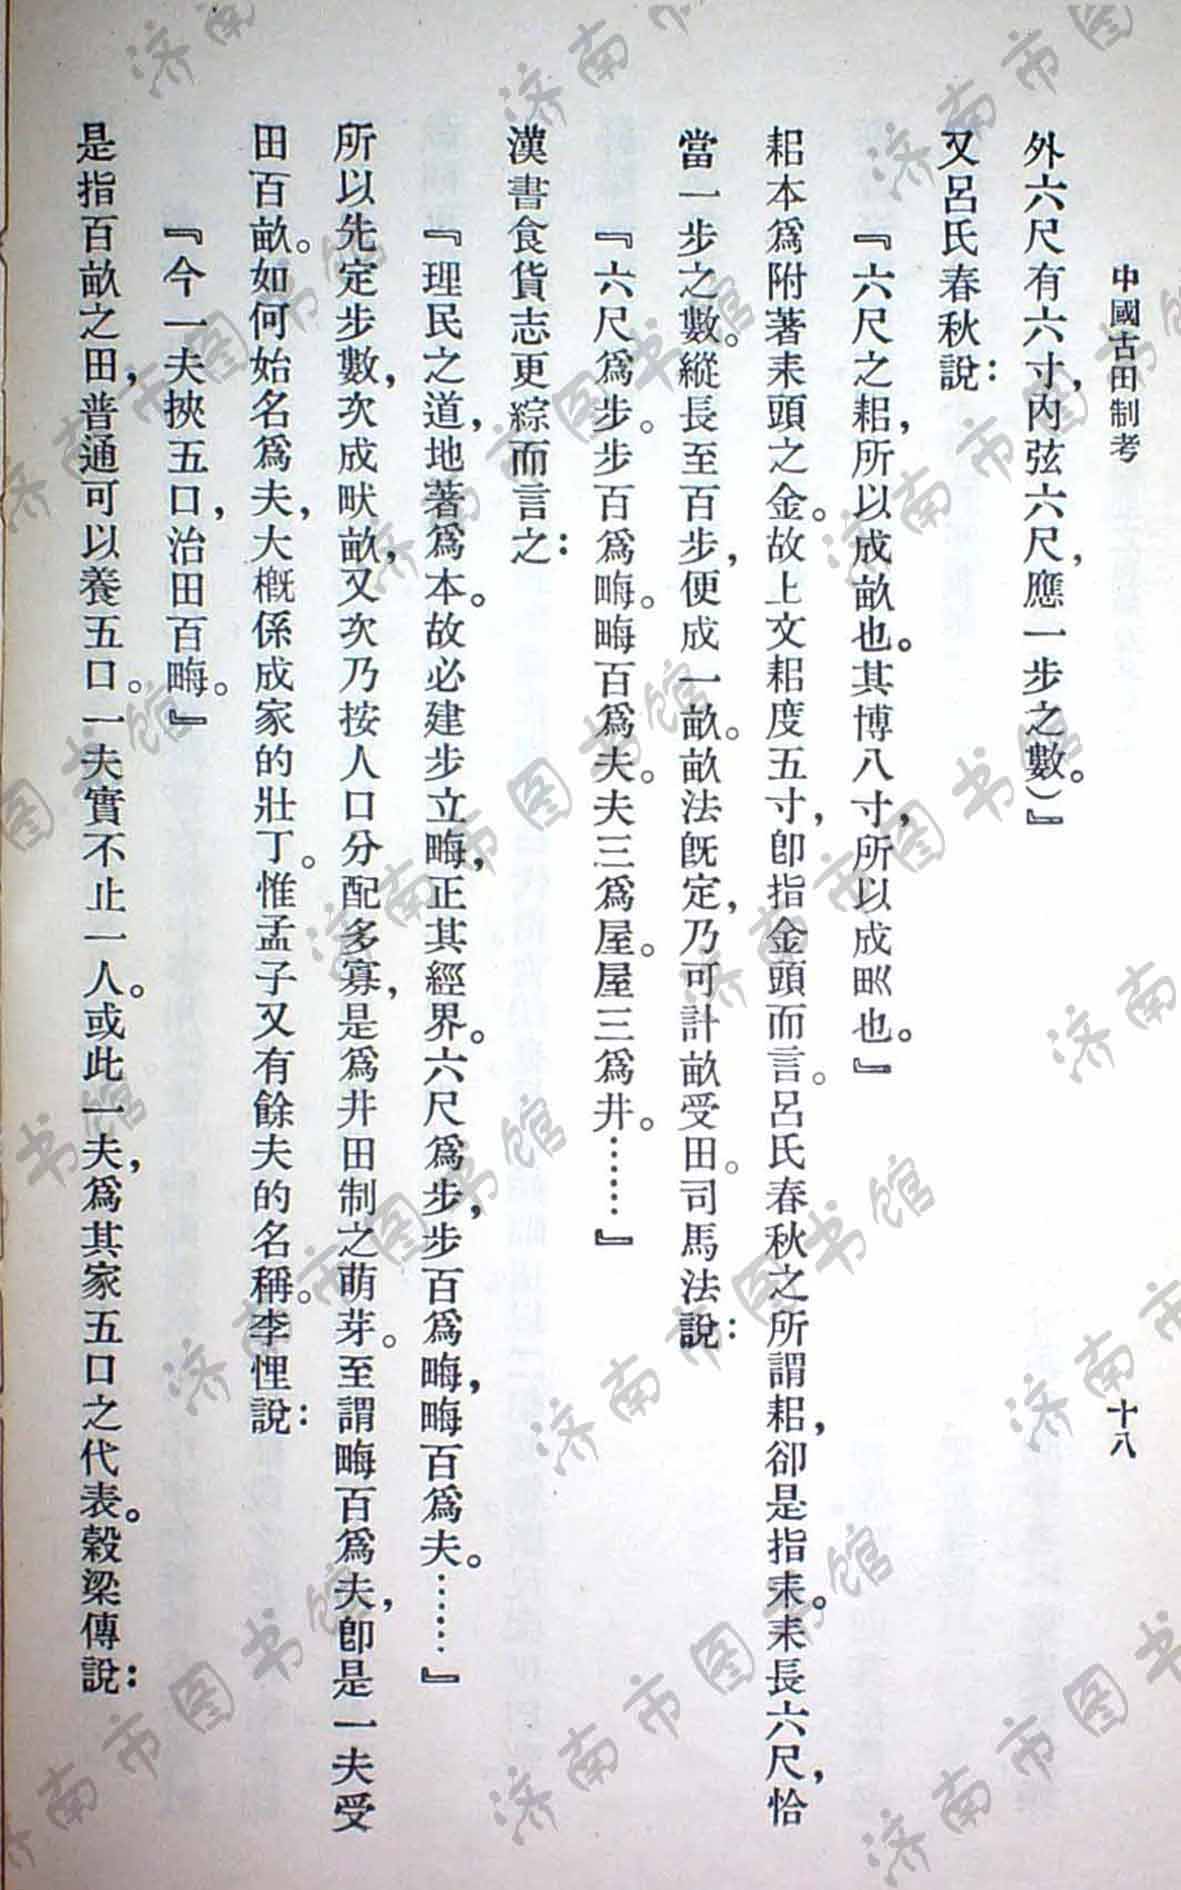 中國古田制考
十八
外六尺有六寸，內弦六尺，應一步之數。）』
又呂氏春秋說：
『六尺之耜，所以成畝也。其博八寸，所以成甽也。』
耜本爲附著耒頭之金。故上文耜度五寸，卽指金頭而言。呂氏春秋之所謂耜，卻是指耒。耒長六尺，恰
當一步之數。縱長至百步，便成一畝。畝法旣定，乃可計畝受田。司馬法說：
『六尺爲步。步百爲畮。畮百爲夫。夫三爲屋。屋三爲井。……』
漢書食貨志更綜而言之：
『理民之道，地著爲本。故必建步立畮，正其經界。六尺爲步，步百爲畮，畮百爲夫。……』
所以先定步數，次成畎畝，又次乃按人口分配多寡，是爲井田制之萌芽。至謂畮百爲夫，卽是一夫受
田百畝。如何始名爲夫，大槪係成家的壯丁。惟孟子又有餘夫的名稱。李悝說：
『今一夫挾五口，治田百畮。』
是指百畝之田，普通可以養五口。一夫實不止一人。或此一夫，爲其家五口之代表。穀梁傳說：
济南市图书馆